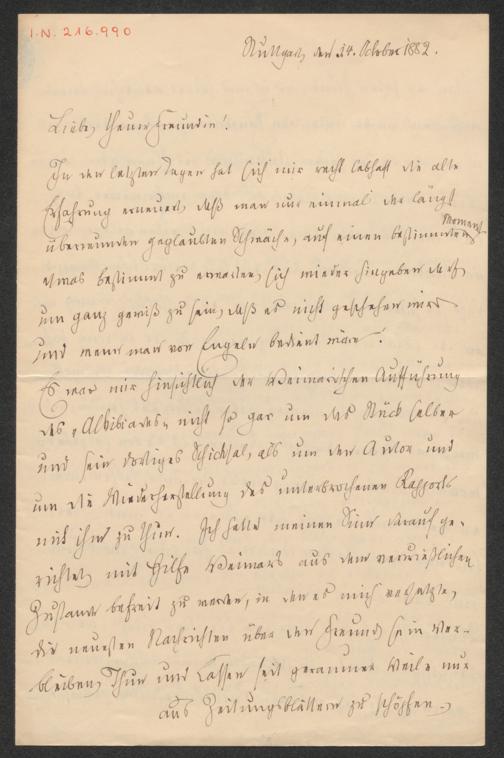 I.N. 216.990
Stuttgart, den 24. October 1882.
Liebe, theure Freundin!
In den letzten Tagen hat sich mir recht lebhaft die alte
Erfahrung erneuert, daß man nur einmal der längst
überwunden geglaubten Schwäche, auf einen bestimmten Moment
etwas bestimmt zu erwarten, sich wieder hingeben darf,
um ganz gewiß zu sein, daß es nicht geschehen wird
und wenn man von Engeln bedient wäre.
Es war mir hinsichtlich der Weimarischen Aufführung
des „Alkibiades" nicht so gar um das Stück selber
und sein dortiges Schicksal, als um den Autor und
um die Wiederherstellung des unterbrochenen Rapports
mit ihm zu thun. Ich hatte meinen Sinn darauf ge-
richtet, mit Hilfe Weimars aus dem verdrießlichen
Zustande befreit zu werden, in den es mich versetzte,
die neuesten Nachrichten über den Freund, sein Ver-
bleiben, Thun und Lassen seit geraumer Weile nur
aus Zeitungsblättern zu schöpfen.